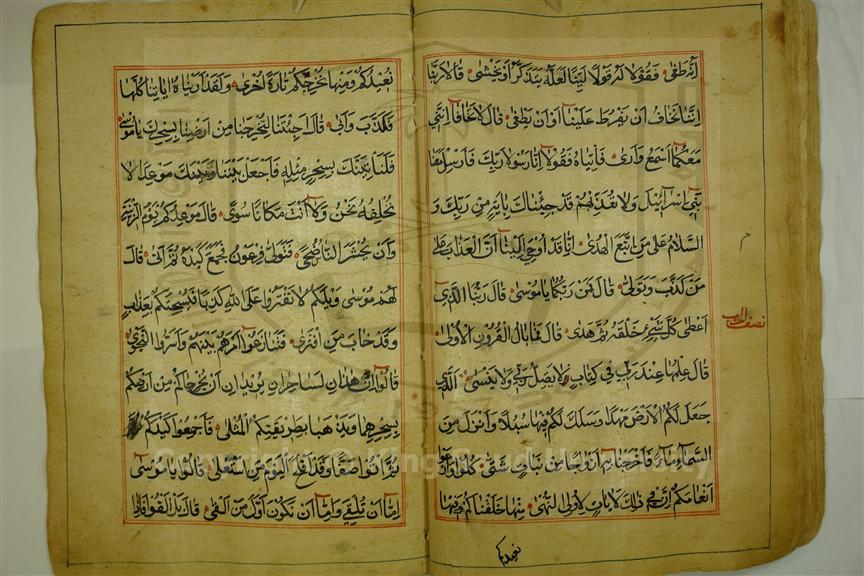 انه طغى فقولا له قولا لينا لعله يتذكر او يخشى قالا ربنا
اننا نخاف ان يفرط علينا او ان يطغى قال لا تخافا انني
معكما اسمع وارى فأتياه فقولا انا رسولا ربك فارسل معنا
بني اسرائيل ولا تعذبهم قد جئناك باية من ربك و
السلام على من اتبع الهدى انا قد اوحي الينا ان العذاب على
من كذب وتولى قال فمن ربكما يا موسى قال ربنا الذي
اعطى كل شيء خلقه ثم هدى قال فما بال القرون الاولى
قال علمها عند ربي في كتاب لا يضل ربي ولا ينسى الذي
جعل لكم الارض مهدا وسلك لكم فيها سبلا وانزل من
السماء ماء فاخرجنا به ازواجا من نبات شتى كلوا وارعوا
انعامكم ان في ذلك لايات لاولى النهى منها خلقناكم وفيها
نعيدكم
م
نعيدكم ومنها نخرجكم تارة اخرى ولقد اريناه اياتنا كلها
فكذب وابى قال اجئتنا لتخرجنا من ارضنا بسحرك يا موسى
فلناتينك بسحر مثله فاجعل بيننا وبينك موعدا لا
نخلفه نحن ولا انت مكانا سوى قال موعدكم يوم الزينة
وان يحشر الناس ضحى فتولى فرعون فجمع كيده ثم اتى قال
لهم موسى ويلكم لا تفتروا على الله كذبا فيسحتكم بعذاب
وقد خاب من افترى فتنازعوا امرهم بينهم واسروا النجوى
قالوا ان هذان لساحران يريدان ان يخرجاكم من ارضكم
بسحرهما ويذهبا بطريقتكم المثلى فاجمعوا كيدكم
ثم ائتوا صفا وقد افلح اليوم من استعلى قالوا يا موسى
اما ان تلقي واما ان نكون اول من القى قال بل القوا فاذا